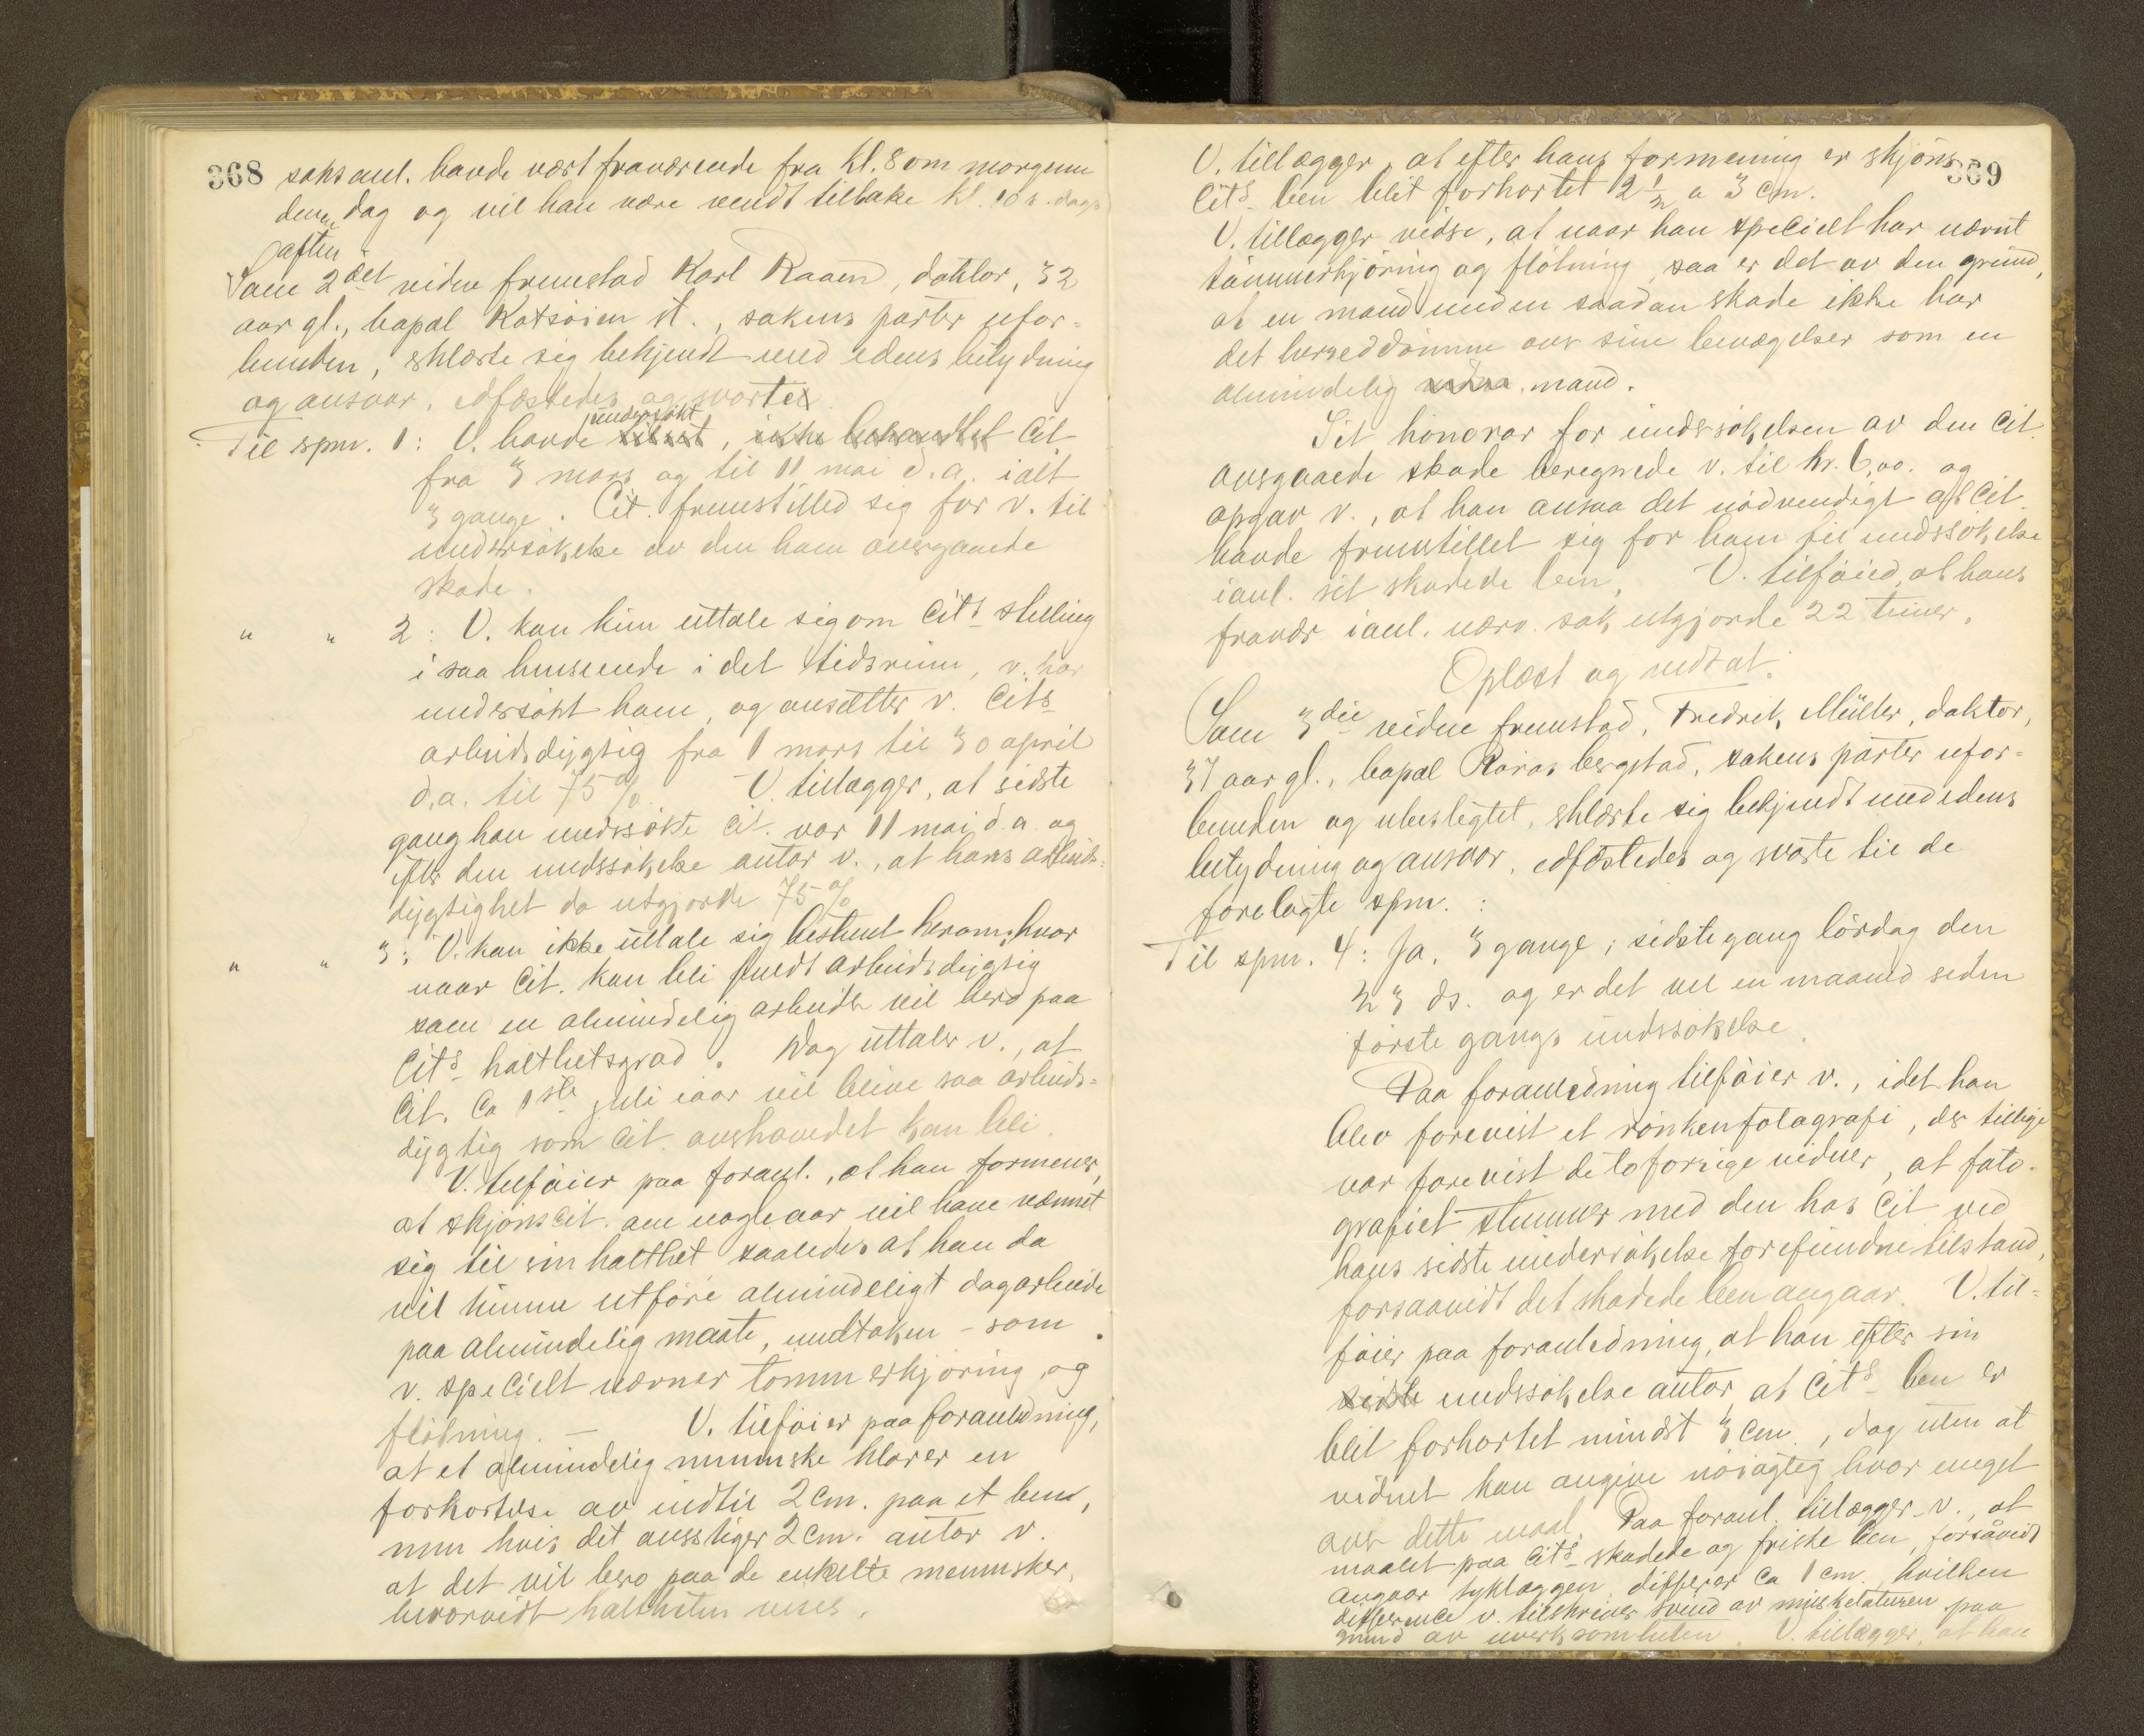 368 saksanl. havde vært fraværende fra kl. 8 om morgenen
denne dag og vil han være vendt tilbake kl. 10 s. dags
aften
Som 2det vidne fremstod Karl Raaen, doktor, 32
aar gl., bopæl Kotsøien st., sakens parter ufor-
bunden, erklærte sig bekjendt med edens betydning
og ansvar, edfæstedes og svarte
Til spm. 1: V. havde undersøkt, ikke behandlet Cit
fra 3 mars og til 11 mai d.a. ialt
3 gange. Cit. fremstilled sig for v. til
undersøkelse av den ham overgaaede
skade.
" " 2: V. kan kun uttale sig om Cits stilling
i saa henseende i det tidsrum, v. har
undersøkt ham, og ansætter v. Cits
arbeidsdygtig fra 1 mars til 30 april
d.a. til 75%. V. tillægger, at sidste
gang han undersøkte Cit. var 11 mai d.a. og
efter den undersøkelse antar v., at hans arbeids-
dygtighet da utgjorde 75%
" " 3: V. kan ikke uttale sig bestemt herom; hvor
naar Cit. kan bli fuldt arbeidsdygtig
som en almindelig arbeider vil bero paa
Cits halthetsgrad. Dog uttaler v., at
Cit. Ca 1ste juli iaar vil blive saa arbeids-
dygtig som Cit. overhovedet kan bli.
V. tilføier paa foranl., at han formener,
at skjønscit. om nogle aar vil have vænnet
sig til sin halthet saaledes at han da
vil kunne utføre almindeligt dagarbeide
paa almindelig maate, undtaken - som
v. specielt nævner tømmerkjøring og
fløtning. - V. tilføier paa foranledning,
at et almindelig menneske klarer en
forkortelse av indtil 2 cm. paa et ben,
men hvis det overstiger 2 cm. antar v.
at det vil bero paa de enkelte mennesker,
hvorvidt haltheten vises.
369
V. tillægger, at efter hans formening er skjøns-
Cits ben blit forkortet 2 1/2 a 3 cm.
V. tillægger videre, at naar han specielt har nævnt
tømmerkjøring og fløtning, saa er det av den grund,
at en mand med en saadan skade ikke har
det herreddømme over sine bevægelser som en
almindelig mand.
Sit honorar for undersøkelsen av den Cit.
overgaaede skade beregnede v. til kr. 6,00. og
opgav v., at han ansaa det nødvendigt at Cit.
havde fremstillet sig for ham til undersøkelse
ianl. sit skadede ben. V. tilføied, at hans
fravær ianl. nærv. sak utgjorde 22 timer.
Oplæst og vedtat.
Som 3die vidne fremstod, Fredrik Müller, doktor,
37 aar gl., bopæl Røros bergstad, sakens parter ufor-
bunden og ubeslegtet, erklærte sig bekjendt med edens
betydning og ansvar, edfæstedes og svarte til de
forelagte spm.:
Til spm. 4: Ja, 3 gange; sidste gang lørdag den
23 ds. og er det vel en maaned siden
første gangs undersøkelse.
Paa foranledning tilføier v., idet han
blev forevist et røntkenfotografi, der tillige
var forevist de to forrige vidner, at foto-
grafiet stemmer med den hos Cit ved
hans sidste undersøkelse forefundne tilstand,
forsaavidt det skadede ben angaar. V. til-
føier paa foranledning, at han efter sin
sidste undersøkelse antar at Cits ben er
blit forkortet mindst 3 cm., dog uten at
vidnet kan angive nøiagtig hvor meget
over dette maal. Paa foranl. tillægger v., at
maalet paa Cits skadede og friske ben, forsåvidt
angaar tyklæggen, differer ca 1 cm, hvilken
difference v. tilskriver svind av musklaturen paa
grund av uvirksomheten. V. tillægger, at han